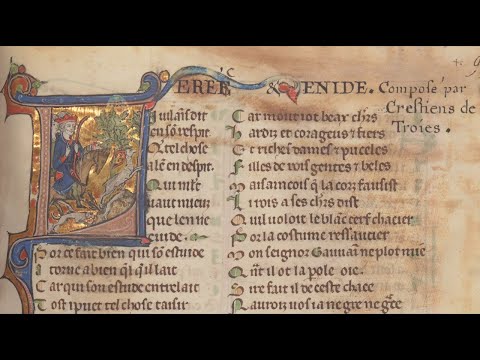 EREC & ENIDE. Composé par
Crestiens de
Troies.
i uilains dit
en sō respit
q̃ tel chose
a lē en despit
Qui mlt
uaut mieuz
que len ne
cuide.
Por ce fait bien qui sō estuide
Atorne a bien q̄l q̄ il lait
Car qui son estude entrelait
Tost i puet tel chose taisir
Car mout i ot beax chrs
Hardiz et corageus & fiers
Et riches dames & puceles
Filles de rois gentes & beles
Mais ancois q̄ la cort fausist
Li rois a ses chrs dist
Quil uoloit le blāc cerf chacier
Por la costume ressaucier
Mon seignor Gauuaī ne plot mie
Quāt il ot la pole oie.
Sire fait il de ceste chace
Nauroiz uos ia ne gre ne gc̄e